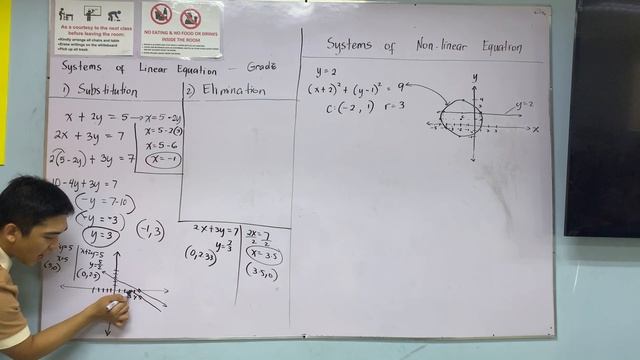 As a courtesy to the next class
before leaving the room:
•Kindly arrange all chairs and table
•Erase writings on the whiteboard
•Pick up all trash
NO EATING & NO FOOD OR DRINKS
INSIDE THE ROOM
Systems of Linear Equation — Grade
1) Substitution
x + 2y = 5 → x = 5 - 2y
2x + 3y = 7
x = 5 - 2(3)
x = 5 - 6
x = -1
2(5-2y) + 3y = 7
10 - 4y + 3y = 7
-y = 7-10
-y = -3
y = 3
(-1, 3)
x+2y=5
(0,2.5)
2) Elimination
2x + 3y = 7
(0,2.33)
2x = 7
x = 3.5
(3.5,0)
Systems of Non-linear Equation
y = 2
(x+2)² + (y-1)² = 9
C: (-2, 1) r = 3
y
y=2
x